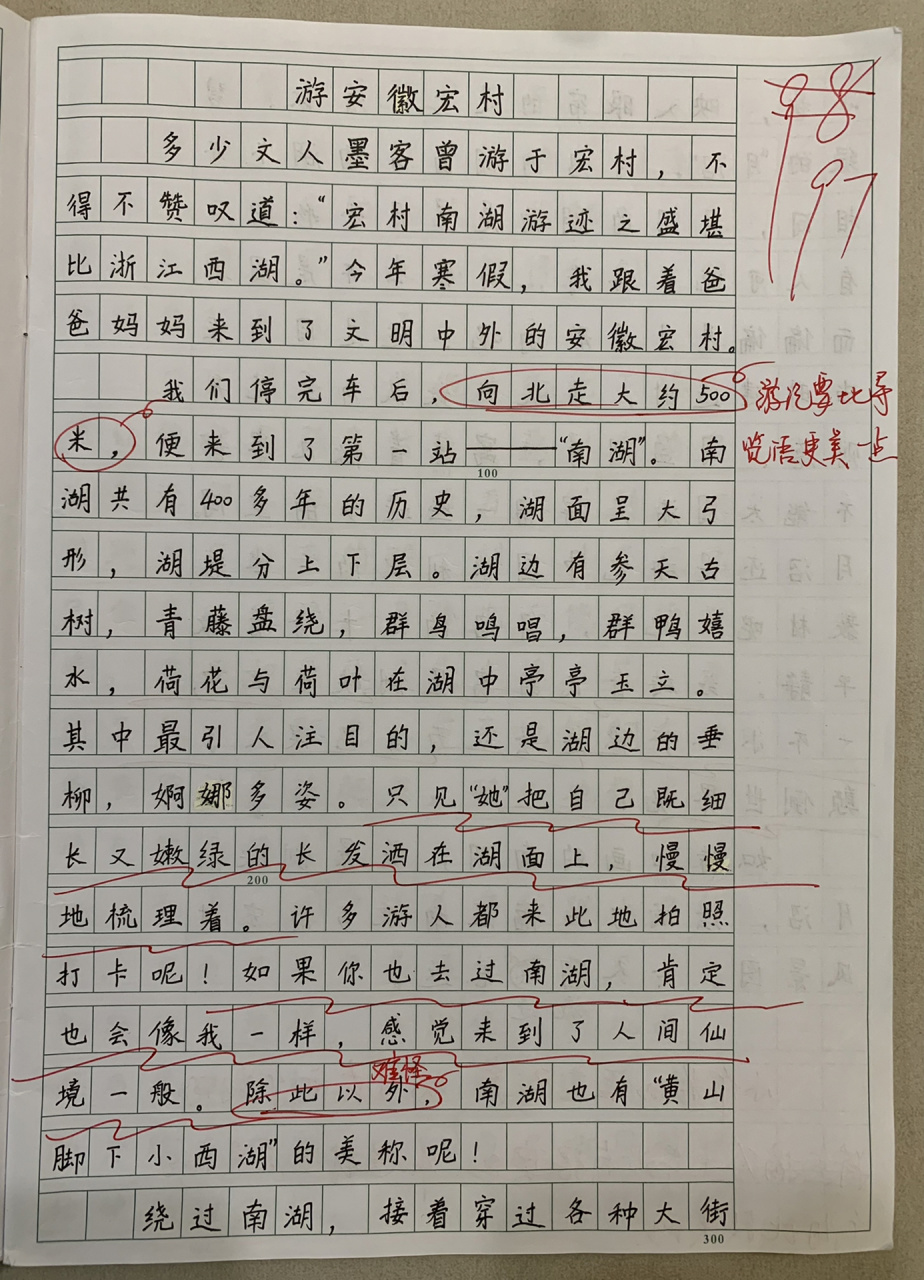 游安徽宏村
多少文人墨客曾游于宏村，不
得不赞叹道：“宏村南湖游迹之盛堪
比浙江西湖。”今年寒假，我跟着爸
爸妈妈来到了文明中外的安徽宏村。
我们停完车后，向北走大约500
米，便来到了第一站——“南湖”。南
100
湖共有400多年的历史，湖面呈大弓
形，湖堤分上下层。湖边有参天古
树，青藤盘绕，群鸟鸣唱，群鸭嬉
水，荷花与荷叶在湖中亭亭玉立。
其中最引人注目的，还是湖边的垂
柳，婀娜多姿。只见“她”把自己既细
长又嫩绿的长发洒在湖面上，慢慢
200
地梳理着。许多游人都来此地拍照
打卡呢！如果你也去过南湖，肯定
也会像我一样，感觉来到了人间仙
境一般。除此以外，南湖也有“黄山
脚下小西湖”的美称呢！
绕过南湖，接着穿过各种大街
300
98
97
游记要比导
览语更美一点
难怪